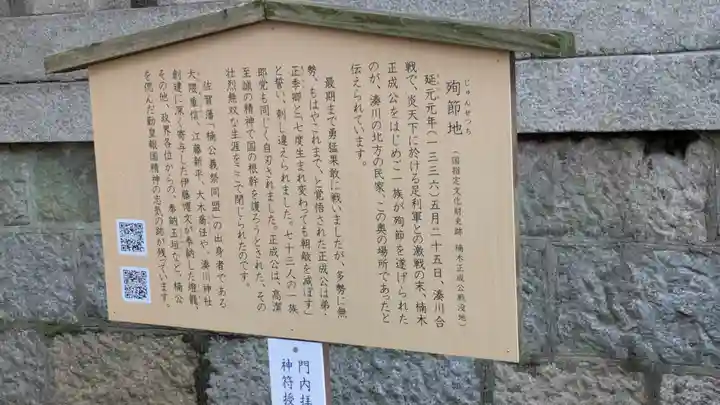 じゅんせつち
殉節地
(国指定文化財史跡 楠木正成公戦没地)
延元元年(一三三六)五月二十五日、湊川合
戦で、炎天下に於ける足利軍との激戦の末、楠木
正成公をはじめご一族が殉節を遂げられた
のが、湊川の北方の民家、この奥の場所であったと
伝えられています。
最期まで勇猛果敢に戦いましたが、多勢に無
勢、もはやこれまで、と覚悟された正成公は弟・
正季卿と「七度生まれ変わっても朝敵を滅ぼす」
と誓い、刺し違えられました。七十三人の一族
郎党も同じく自刃されました。正成公は、高潔
至誠の精神で国の根幹を護ろうとされた、その
壮烈無双な生涯をここで閉じられたのです。
佐賀藩「楠公義祭同盟」の出身者である
大隈重信、江藤新平、大木喬任や、湊川神社
創建に深く寄与した伊藤博文が奉納した燈籠、
その他、政界各位からの、奉納玉垣など、楠公
を偲んだ勤皇報国精神の志気の跡が残っています。
門内拝
神符授